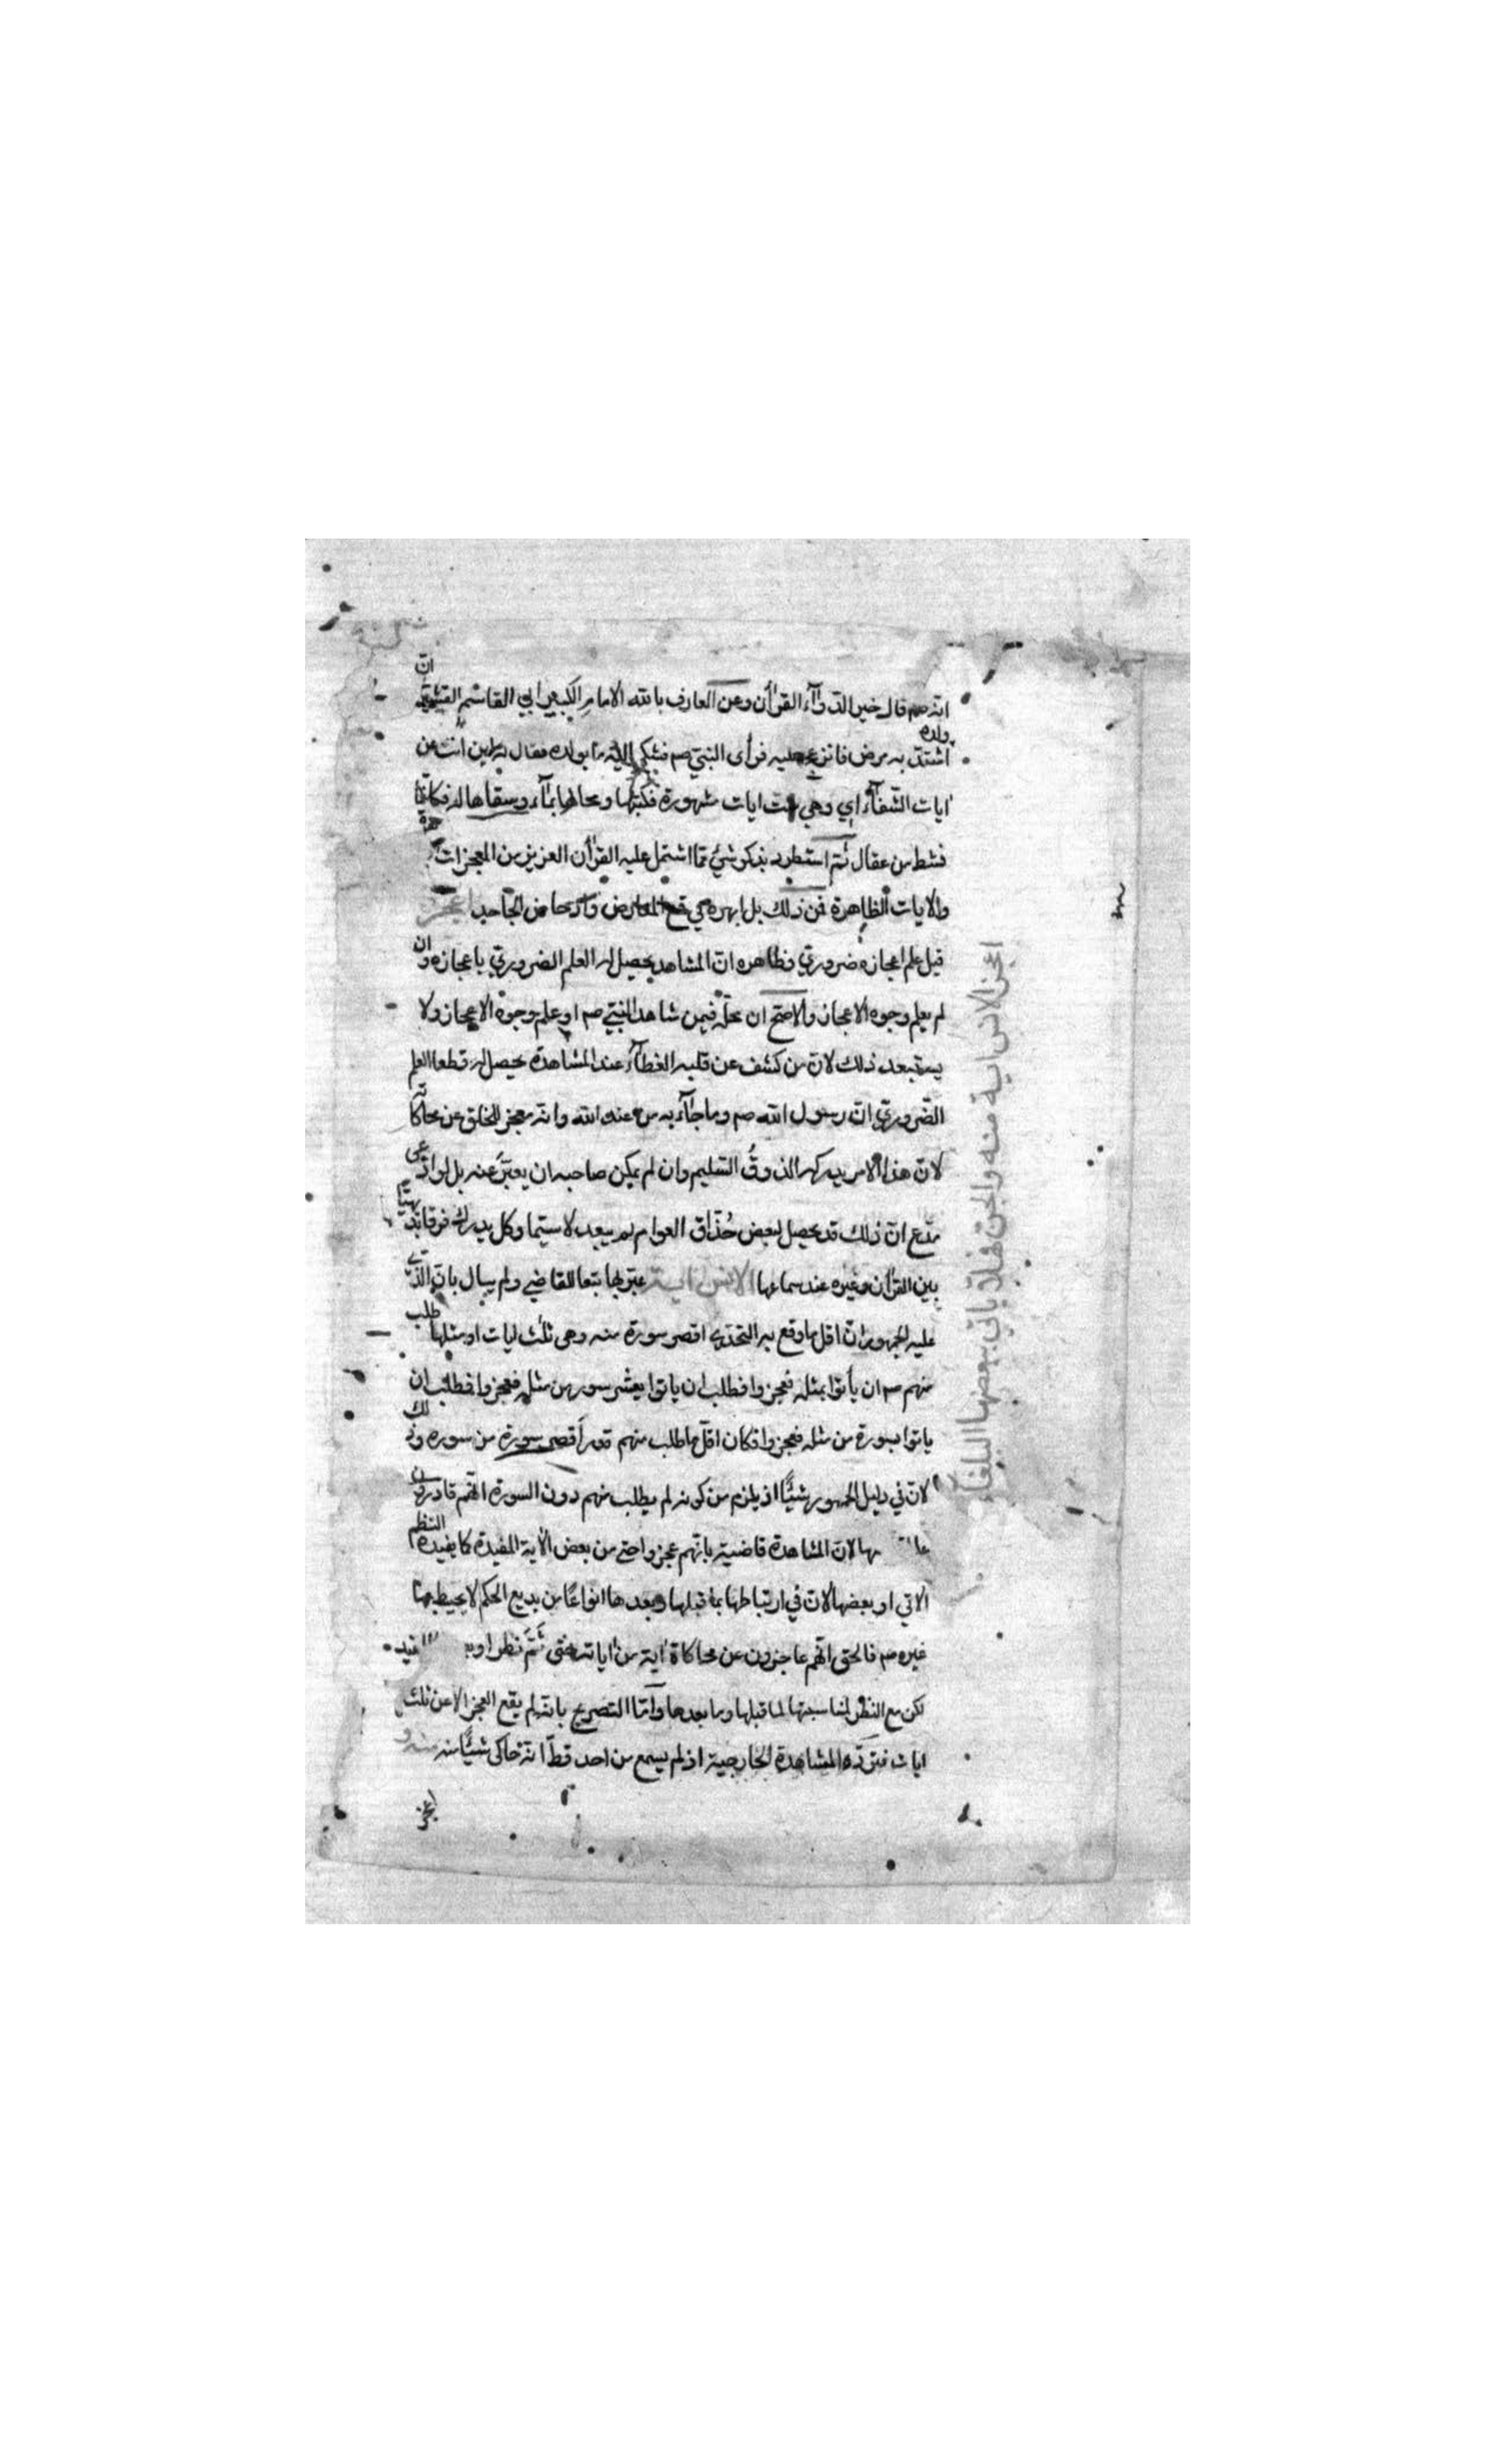 انه صم قال خير الدوآء القرأن وعن العارف بالله الامام الكبير ابي القاسم القشيري ان
ولده اشتد به مرض فانزعج عليه فرأى النبي صم فشكى اليه ما بولده فقال له اين انت من
ايات الشفآء اي وهي ست ايات مشهورة فكتبها ومحاها بمآء وسقاها له فكانما
نشط من عقال ثم استطرد بذكر شئ مما اشتمل عليه القرأن العزيز من المعجزات
والايات الظاهرة فمن ذلك بل ابهره في قمع المعارض الجاحد اعجز
قيل علم اعجازه ضروري وظاهره ان المشاهد يحصل له العلم الضروري باعجازه وان
لم يعلم وجوه الاعجاز والاصح ان محله فيمن شاهد النبي صم او علم وجوه الاعجاز ولا
يستبعد ذلك لان من كشف عن قلبه الغطآء عند المشاهدة يحصل له قطعا العلم
الضروري ان رسول الله صم وما جآء به من عند الله وانه معجز للخلق عن محاكاته
لان هذا الامر يدركه الذوق السليم وان لم يمكن صاحبه ان يعبر عنه بل لو ادعى
مدع ان ذلك قد يحصل لبعض حذاق العوام لم يبعد لا سيما وكل يدرك فرقا بديهيا
بين القرأن وغيره عند سماعها الانس اية عبر بها تبعا للقاضي ولم يبال بان الذي
عليه الجمهور ان اقل ما وقع به التحدي اقصر سورة منه وهي ثلث ايات او مثلها طلب
منهم صم ان يأتوا بمثله فعجزوا فطلب ان ياتوا بعشر سور من مثله فعجزوا فطلب ان
ياتوا بسورة من مثله فعجزوا فكان اقل ما طلب منهم قدر اقصر سورة من سوره وذلك
لان في دليل الجمهور شيئا اذ يلزم من كونه لم يطلب منهم دون السورة انهم قادرون
لان المشاهدة قاضية بانهم عجزوا حتى من بعض الاية المفيدة كما يفيده النظم
الاتي او بعضها لان في ارتباطها بما قبلها وبعدها انواعا من بديع الحكم لا يحيط بها
غيره صم فالحق انهم عاجزون عن محاكاة اية من اياته حتى ثم نظر
لكن مع النظر لمناسبتها لما قبلها وما بعدها وآما التصريح بانه لم يقع العجز الا عن ثلث
ايات فترده المشاهدة الخارجية اذ لم يسمع من احد قط انه حاكى شيئا منه
اعجز
اعجز الانس اية منه والجن فهلا ياتي ببعضها البلغاء